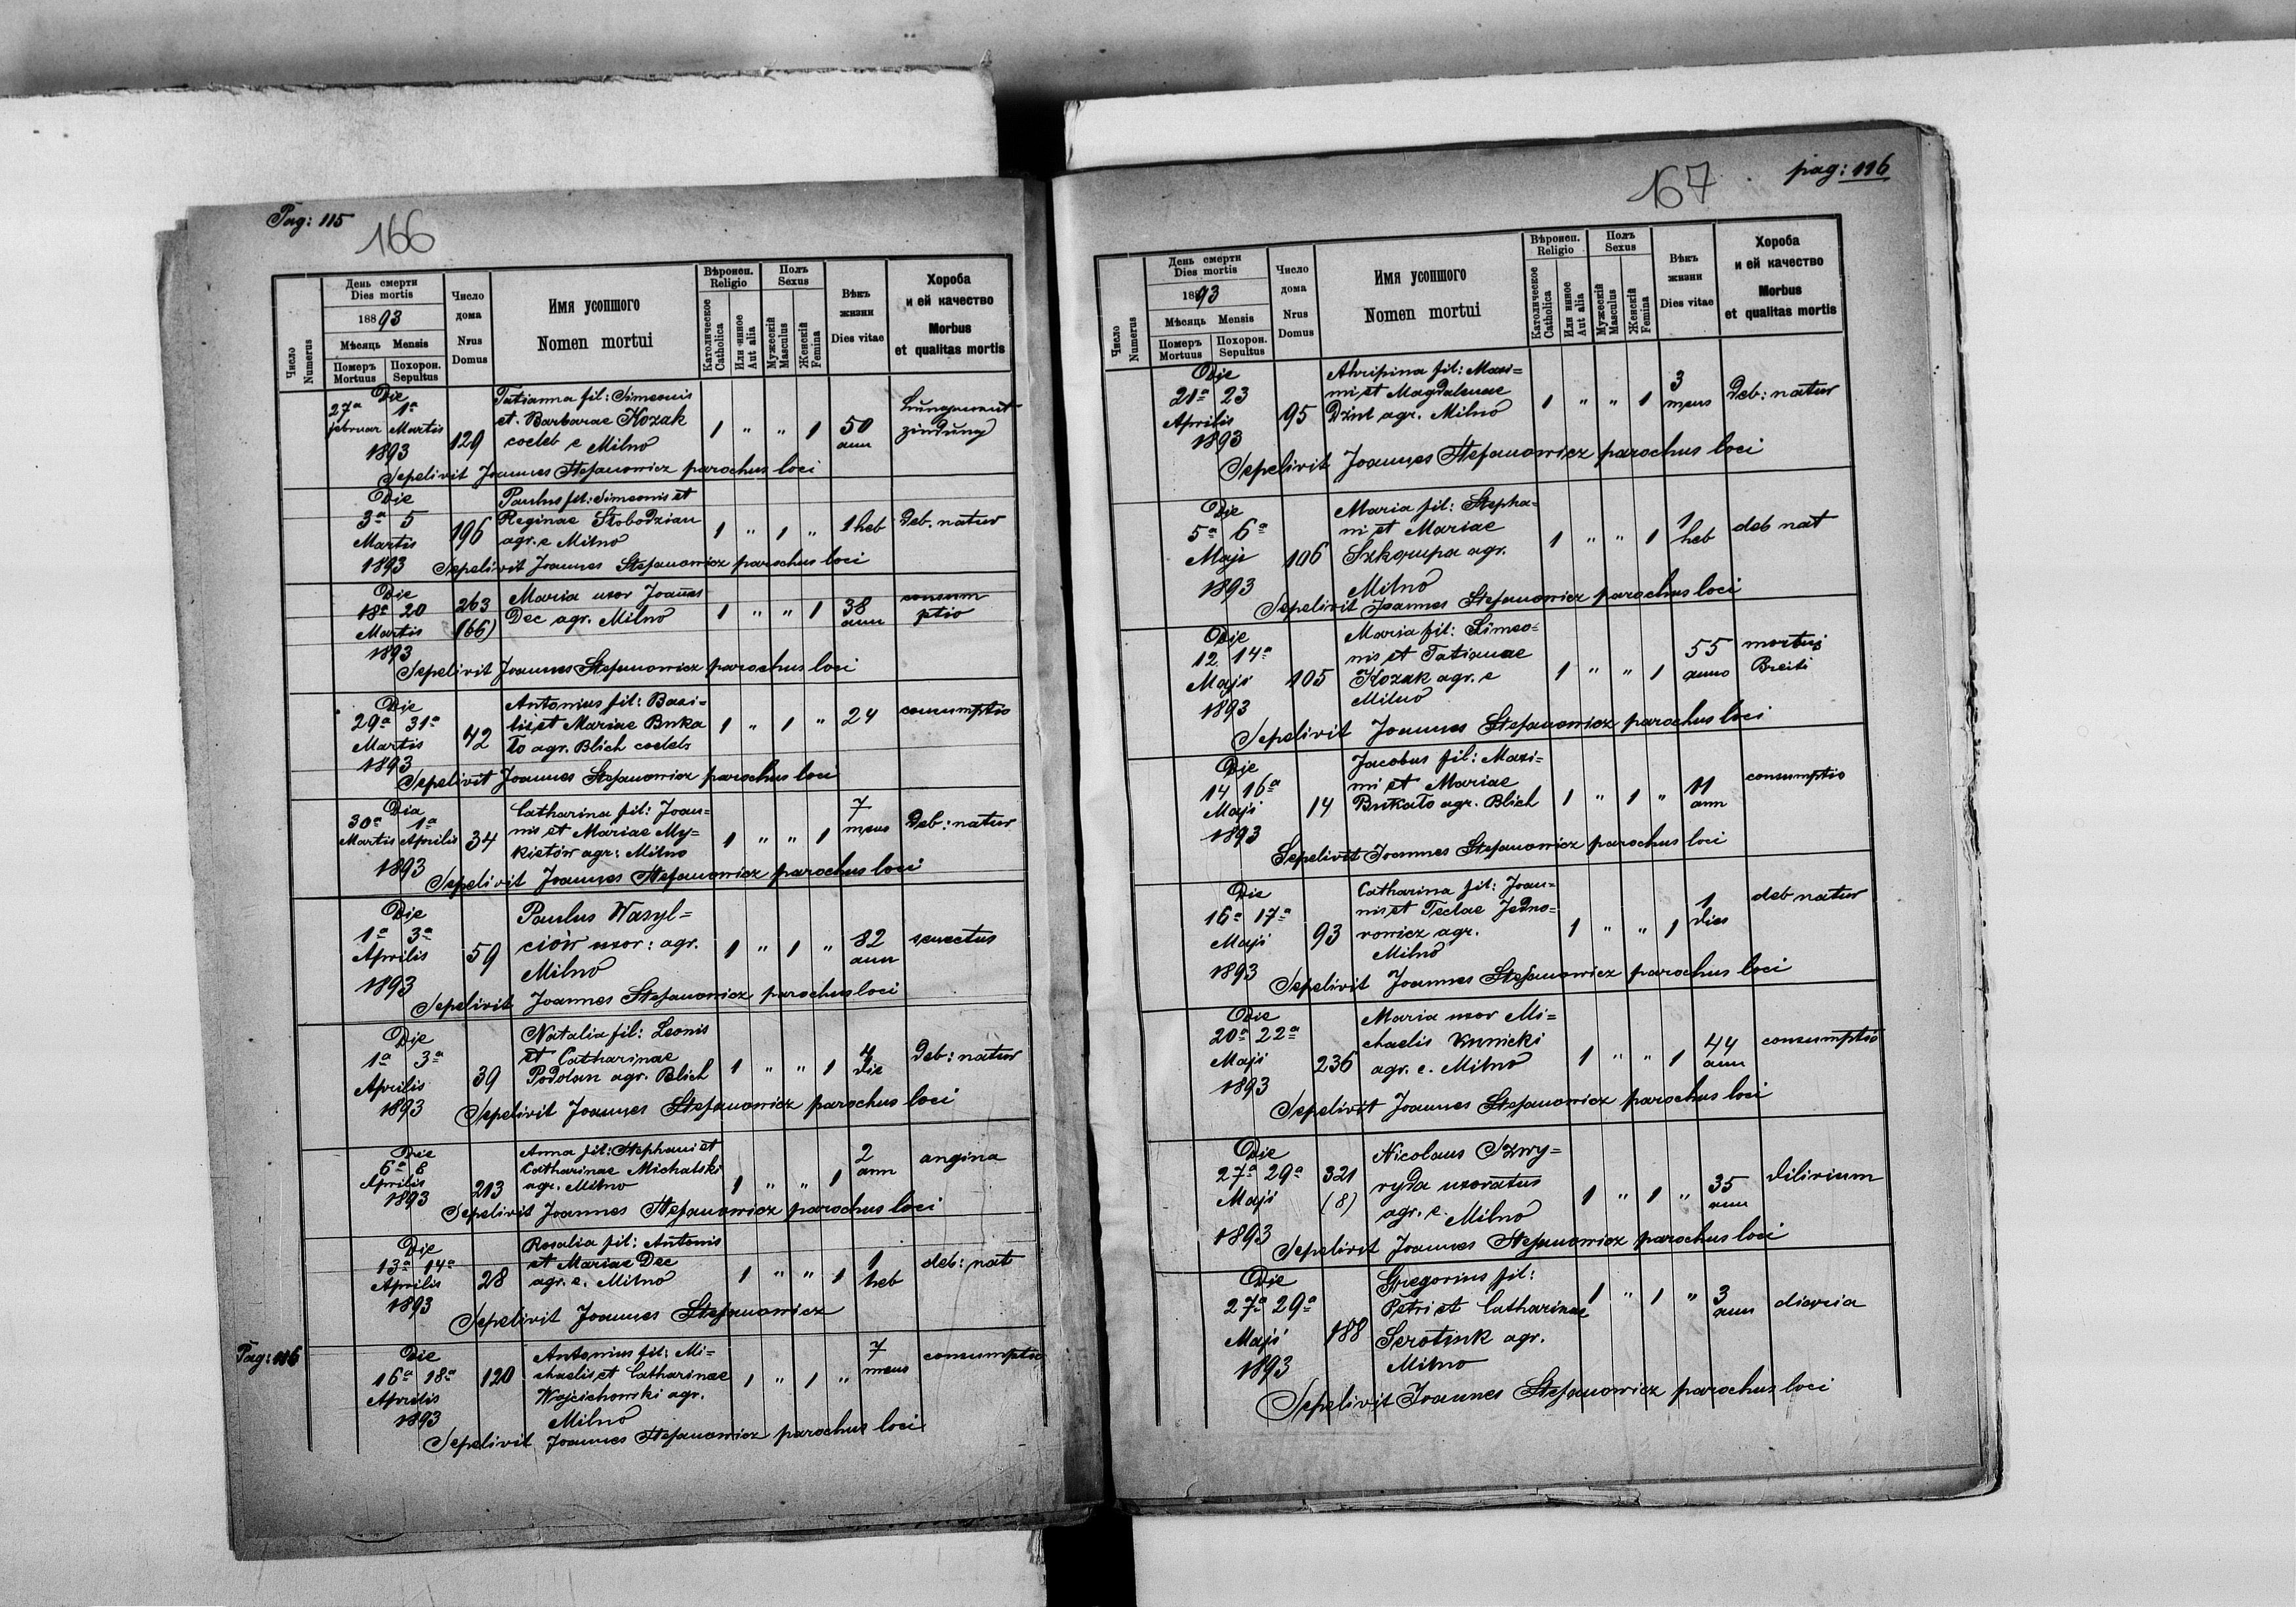 Pag: 115
166
Число Numerus
День смерти
Dies mortis
1893
Мѣсяць Mensis
Померъ Mortuus
Похорон. Sepultus
Число дома
Nrus Domus
Имя усопшого
Nomen mortui
Вѣронсп. Religio
Католическое Catholica
Или инное Aut alia
Полъ Sexus
Мужескій Masculus
Женскій Femina
Вѣкъ жизни
Dies vitae
Хороба и ей качество
Morbus et qualitas mortis
Die
27a februar 1a Martis
1893
129
Tatianna fil: Simeonis
et Barbarae Kozak
coeleb e Milno
1 " " 1
50 ann
Lungenent
zindung
Sepelivit Joannes Stefanowicz parochus loci
Die
3a 5
Martis
1893
196
Paulus fil: Simeonis et
Reginae Słobodzian
agr. e Milno
1 " 1 "
1 heb
Deb. natur
Sepelivit Joannes Stefanowicz parochus loci
Die
18a 20
Martis
1893
263
(66)
Maria uxor Joannes
Dec agr. Milno
1 " " 1
38 ann
consum
ptio
Sepelivit Joannes Stefanowicz parochus loci
Die
29a 31a
Martis
1893
42
Antonius fil: Basi=
lis et Mariae Buka
to agr. Blich coeleb
1 " 1 "
24
consumptio
Sepelivit Joannes Stefanowicz parochus loci
Dia
30a Martis 1a Aprilis
1893
34
Catharina fil: Joan=
nis et Mariae My=
kietów agr: Milno
1 " " 1
7 mens
Deb: natur
Sepelivit Joannes Stefanowicz parochus loci
Die
1a 3a
Aprilis
1893
59
Paulus Wasyl=
ciów uxor: agr.
Milno
1 " 1 "
82 ann
senectus
Sepelivit Joannes Stefanowicz parochus loci
Die
1a 3a
Aprilis
1893
39
Natalia fil: Leonis
et Catharinae
Podolan agr. Blich
1 " " 1
4 die
Deb: natur
Sepelivit Joannes Stefanowicz parochus loci
Die
6a 8
Aprilis
1893
213
Anna fil: Stephani et
Catharinae Michalski
agr. Milno
1 " " 1
2 ann
angina
Sepelivit Joannes Stefanowicz parochus loci
Die
13a 14a
Aprilis
1893
28
Rosalia fil: Antonis
et Mariae Dec
agr. e. Milno
1 " " 1
1 heb
deb: nat
Sepelivit Joannes Stefanowicz
Pag: 116
Die
16a 18a
Aprilis
1893
120
Antonius fil: Mi=
chaelis et Catharinae
Wojcichowski agr.
Milno
1 " 1 "
7 mens
consumptio
Sepelivit Joannes Stefanowicz parochus loci
167
pag: 116
Число Numerus
День смерти
Dies mortis
1893
Мѣсяць Mensis
Померъ Mortuus
Похорон. Sepultus
Число дома
Nrus Domus
Имя усопшого
Nomen mortui
Вѣронсп. Religio
Католическое Catholica
Или инное Aut alia
Полъ Sexus
Мужескій Masculus
Женскій Femina
Вѣкъ жизни
Dies vitae
Хороба и ей качество
Morbus et qualitas mortis
Die
21a 23
Aprilis
1893
95
Ahripina fil: Maxi=
mi et Magdalenae
agr. Milno
1 " " 1
3 mens
Deb: natur
Sepelivit Joannes Stefanowicz parochus loci
Die
5a 6a
Maji
1893
106
Maria fil: Stepha=
ni et Mariae
Szkorupa agr.
Milno
1 " " 1
1 heb
deb nat
Sepelivit Joannes Stefanowicz parochus loci
Die
12 14a
Maji
1893
105
Maria fil: Simeo=
nis et Tatianae
Kozak agr. e
Milno
1 " " 1
55 anno
Sepelivit Joannes Stefanowicz parochus loci
Die
14 16a
Maji
1893
14
Jacobus fil: Maxi=
mi et Mariae
Bukato agr. Blich
1 " 1 "
11 ann
consumptio
Sepelivit Joannes Stefanowicz parochus loci
Die
16a 17a
Maji
1893
93
Catharina fil: Joan=
nis et Teclae Jedno=
rowicz agr.
Milno
1 " " 1
1 dies
deb natur
Sepelivit Joannes Stefanowicz parochus loci
Die
20a 22a
Maji
1893
236
Maria uxor Mi=
chaelis Kunicki
agr. e. Milno
1 " " 1
44 ann
consumptio
Sepelivit Joannes Stefanowicz parochus loci
Die
27a 29a
Maji
1893
321
(8)
Nicolaus Szwy=
ryda uxoratus
agr. e. Milno
1 " 1 "
35 ann
dilirium
Sepelivit Joannes Stefanowicz parochus loci
Die
27a 29a
Maji
1893
188
Gregorius fil:
Petri et Catharinae
Serotiuk agr.
Milno
1 " 1 "
3 ann
diaria
Sepelivit Joannes Stefanowicz parochus loci